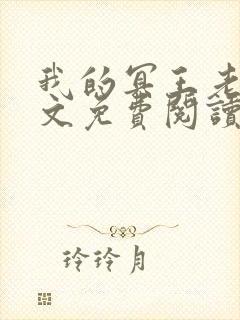 我的冥王老
文免費閱讀
玲玲月